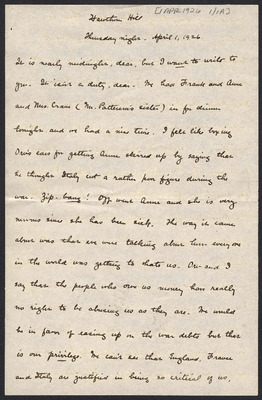 [1 APR 1926 1/1A]
Hawthorn Hill
Thursday night. April 1, 1926
It is nearly midnight, dear, but I want to write to
you. It isn't a duty, dear. We had Frank and Anne
and Mrs. Crane (Mr. Patterson's sister) in for dinner
tonight and we had a nice time. I felt like boxing
Orv's ears for getting Anne stirred up by saying that
he thought Italy cut a rather poor figure during the
war. Zip-bang! Off went Anne and she is very
nervous since she has been sick. The way it came
about was that we were talking about how everyone
in the world was getting to hate us. Orv and I
say that the people who owe us money have really
no right to be abusing us as they are. We would
be in favor of easing up on the war debts but that
is our privilege. We can't see that England, France
and Italy are justified in being so critical of us,